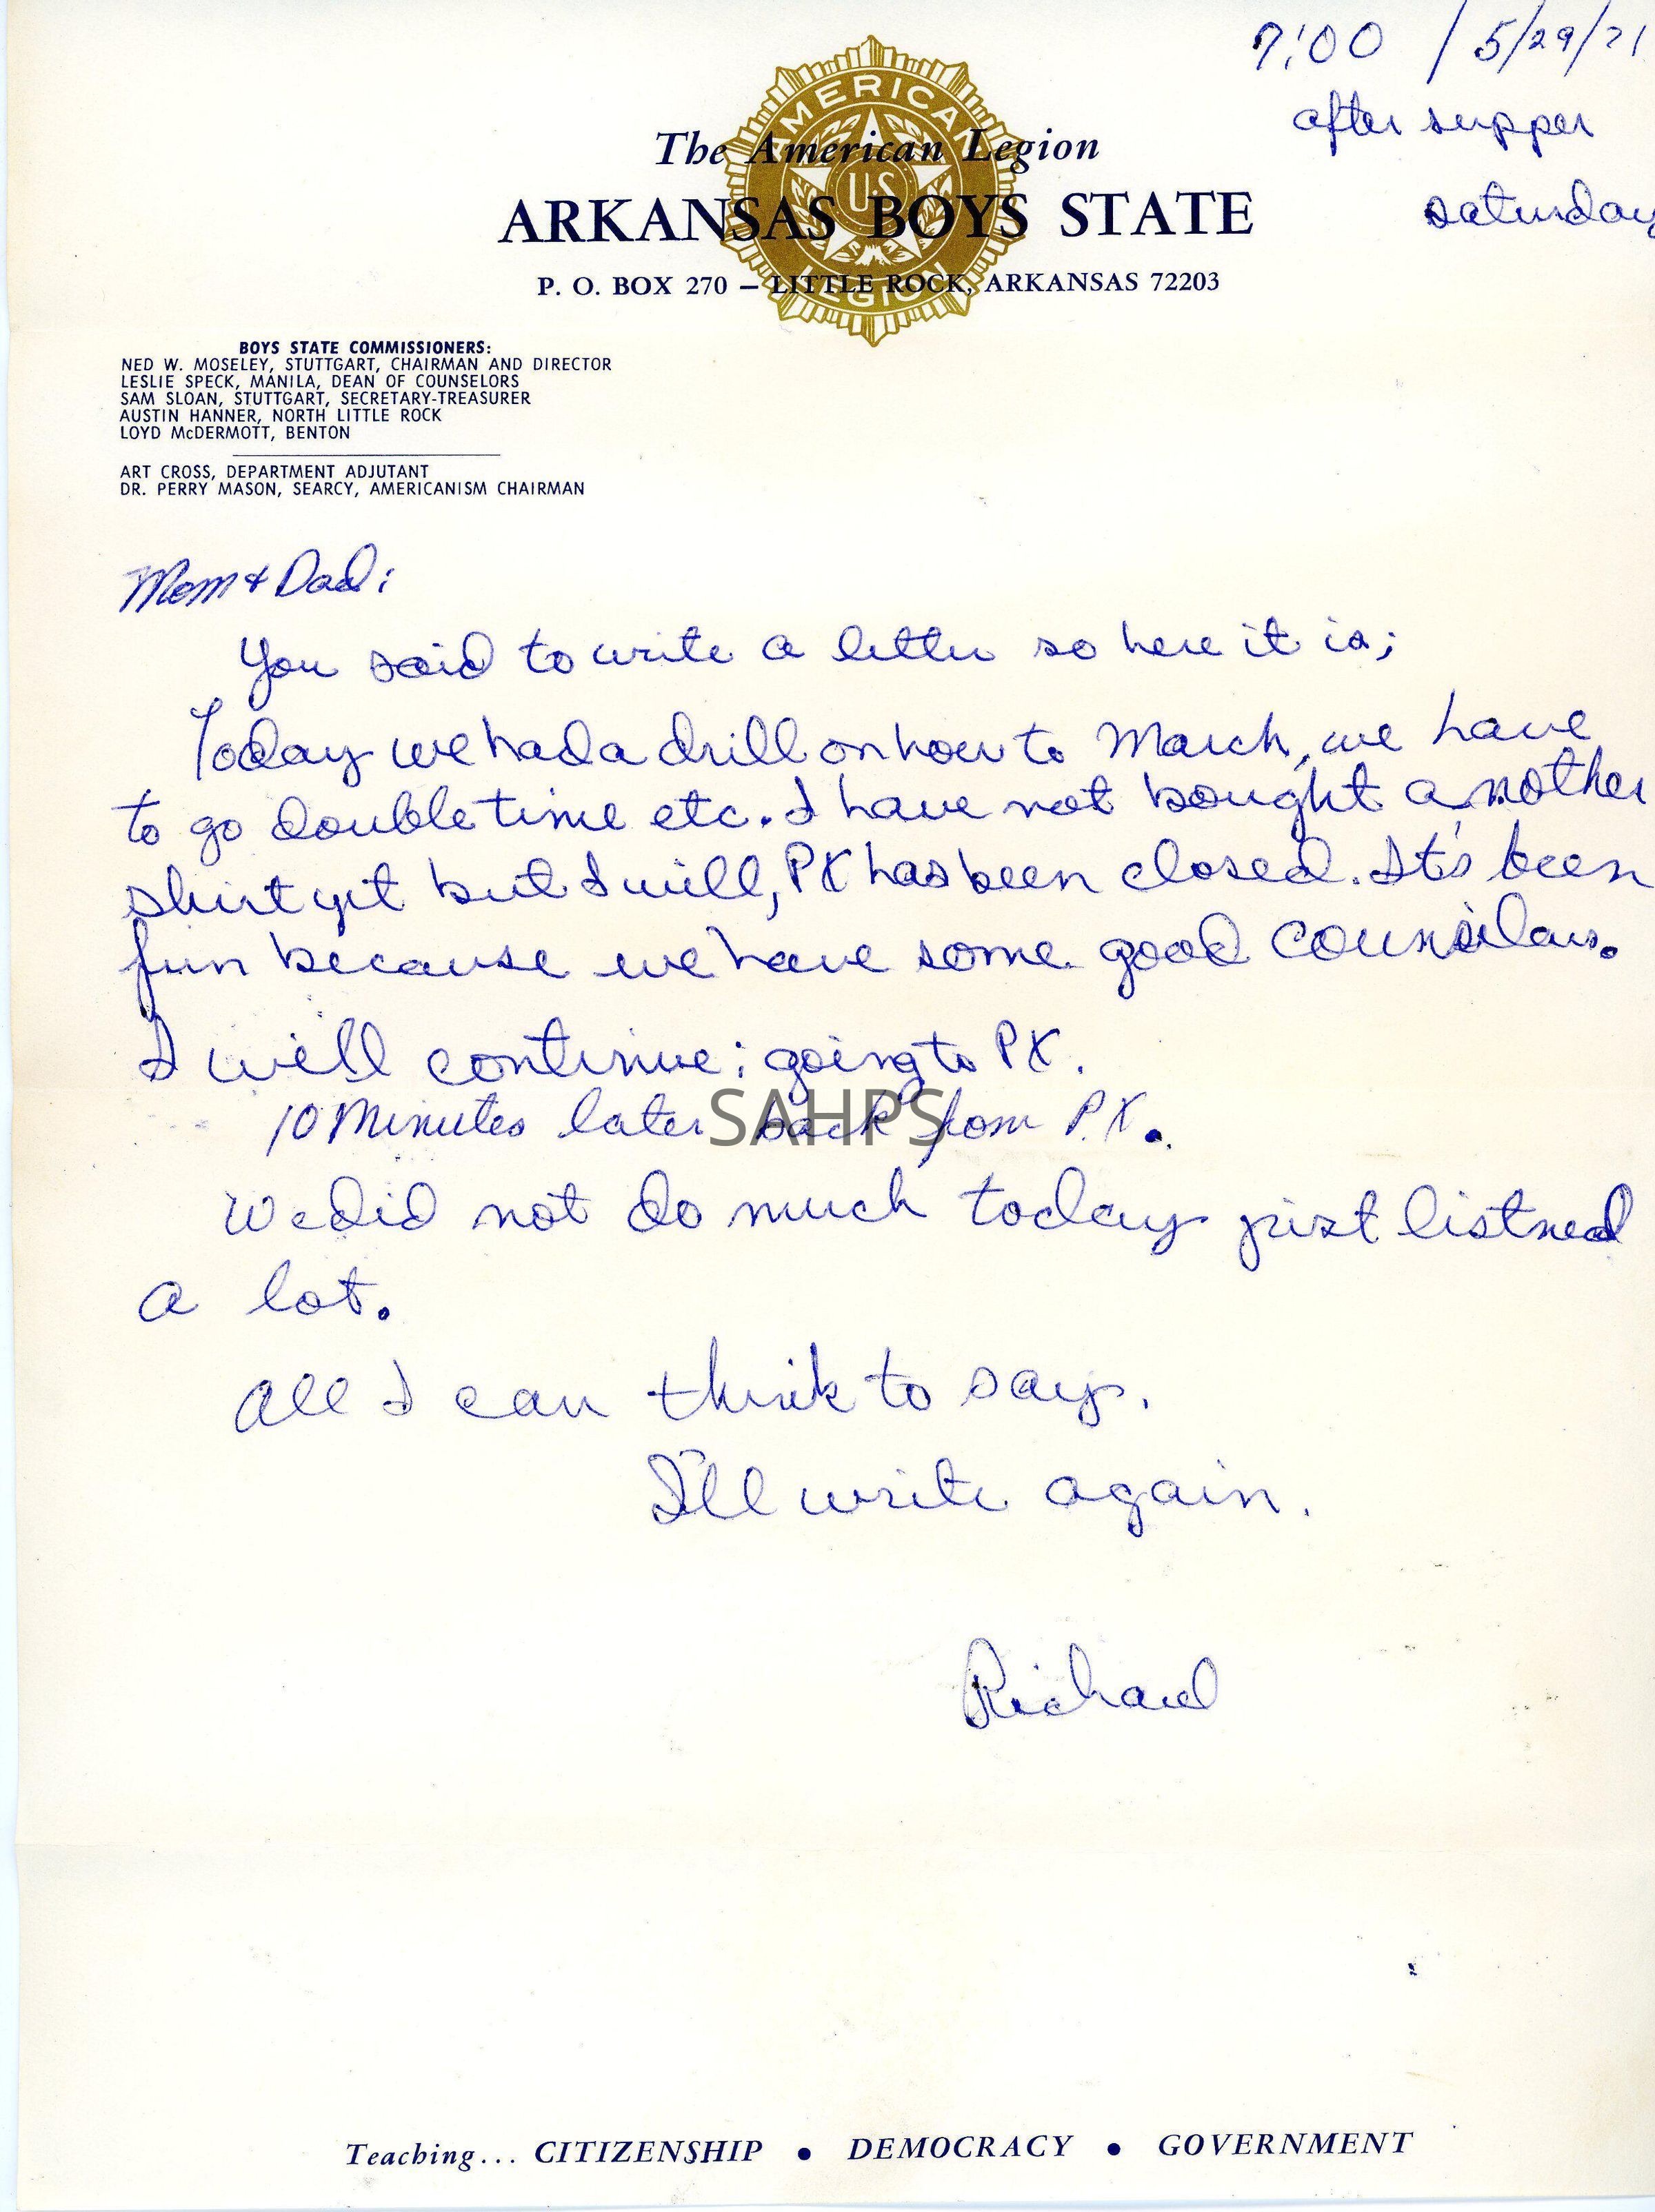 7:00 / 5/29/71
after supper
saturday
AMERICAN
U.S
LEGION
The American Legion
ARKANSAS BOYS STATE
P. O. BOX 270 – LITTLE ROCK, ARKANSAS 72203
BOYS STATE COMMISSIONERS:
NED W. MOSELEY, STUTTGART, CHAIRMAN AND DIRECTOR
LESLIE SPECK, MANILA, DEAN OF COUNSELORS
SAM SLOAN, STUTTGART, SECRETARY-TREASURER
AUSTIN HANNER, NORTH LITTLE ROCK
LOYD McDERMOTT, BENTON
ART CROSS, DEPARTMENT ADJUTANT
DR. PERRY MASON, SEARCY, AMERICANISM CHAIRMAN
Mom & Dad:
You said to write a letter so here it is;
Today we had a drill on how to March, we have
to go double time etc. I have not bought another
shirt yit but I will, PX has been closed. It's been
fun because we have some good counsilars.
I will continue; going to PX.
10 Minutes later back from P.X.
SAHPS
We did not do much today just listned
a lot.
All I can think to say.
I'll write again.
Richard
Teaching... CITIZENSHIP • DEMOCRACY • GOVERNMENT